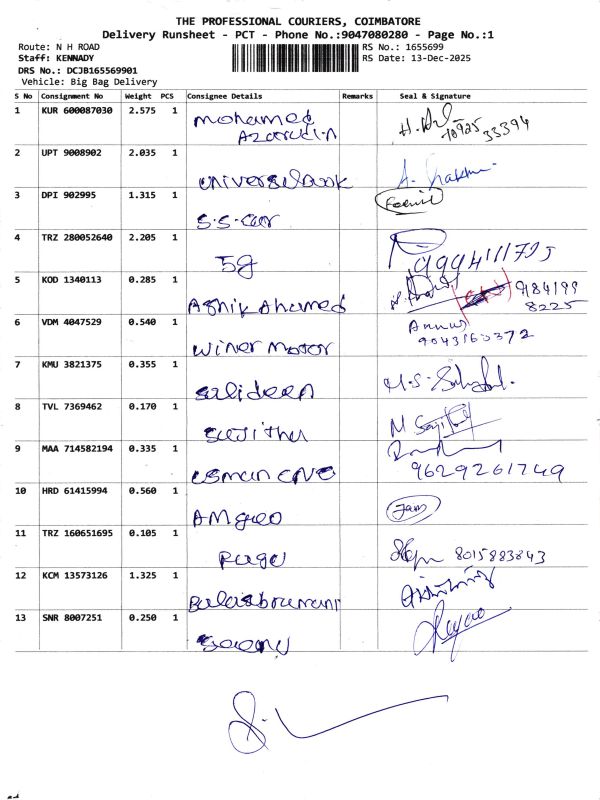 THE PROFESSIONAL COURIERS, COIMBATORE
Delivery Runsheet - PCT - Phone No.:9047080280 - Page No.:1
Route: N H ROAD RS No.: 1655699
Staff: KENNADY RS Date: 13-Dec-2025
DRS No.: DCJB165569901
Vehicle: Big Bag Delivery
S No Consignment No Weight PCS Consignee Details Remarks Seal & Signature
1 KUR 600087030 2.575 1 mohamed
Azarudin
2 UPT 9008902 2.035 1 universalbook
3 DPI 902995 1.315 1 S.S-car
4 TRZ 280052640 2.205 1 5g
5 KOD 1340113 0.285 1 Ashik Ahamed 984199
8225
6 VDM 4047529 0.540 1 winer motor
9043160372
7 KMU 3821375 0.355 1 salideen M.S.
8 TVL 7369462 0.170 1 sujitha M
9 MAA 714582194 0.335 1 usman
9629261749
10 HRD 61415994 0.560 1
11 TRZ 160651695 0.105 1 8015883843
12 KCM 13573126 1.325 1
13 SNR 8007251 0.250 1